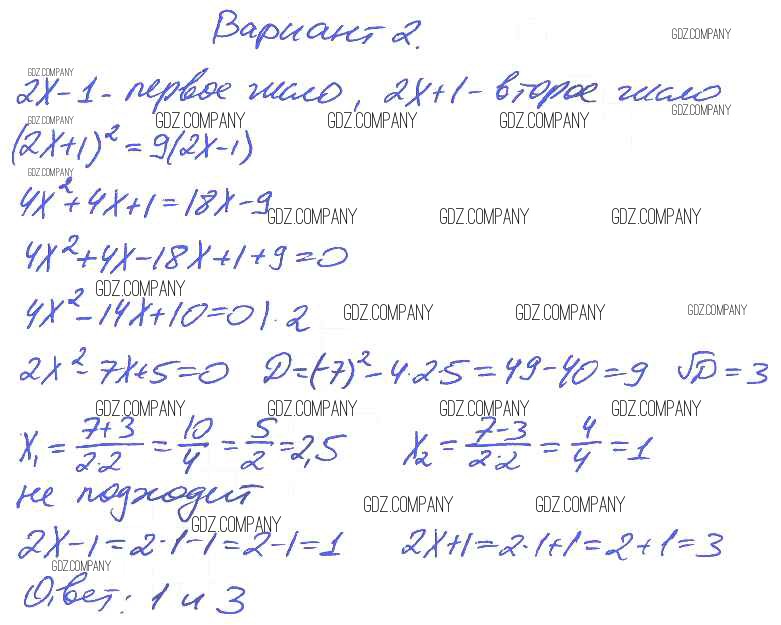 Вариант 2.
GDZ.COMPANY
GDZ.COMPANY
2X-1 - первое число, 2X+1 - второе число
GDZ.COMPANY
GDZ.COMPANY GDZ.COMPANY GDZ.COMPANY GDZ.COMPANY
(2X+1)² = 9(2X-1)
GDZ.COMPANY
4X² + 4X + 1 = 18X - 9
GDZ.COMPANY GDZ.COMPANY GDZ.COMPANY
4X² + 4X - 18X + 1 + 9 = 0
GDZ.COMPANY
4X² - 14X + 10 = 0 | · 2
GDZ.COMPANY GDZ.COMPANY GDZ.COMPANY
2X² - 7X + 5 = 0 D = (-7)² - 4·2·5 = 49 - 40 = 9 √D = 3
GDZ.COMPANY GDZ.COMPANY GDZ.COMPANY GDZ.COMPANY
X₁ = (7+3)/(2·2) = 10/4 = 5/2 = 2,5 X₂ = (7-3)/(2·2) = 4/4 = 1
не подходит
GDZ.COMPANY GDZ.COMPANY
GDZ.COMPANY
2X-1 = 2·1-1 = 2-1 = 1 2X+1 = 2·1+1 = 2+1 = 3
GDZ.COMPANY
Ответ: 1 и 3